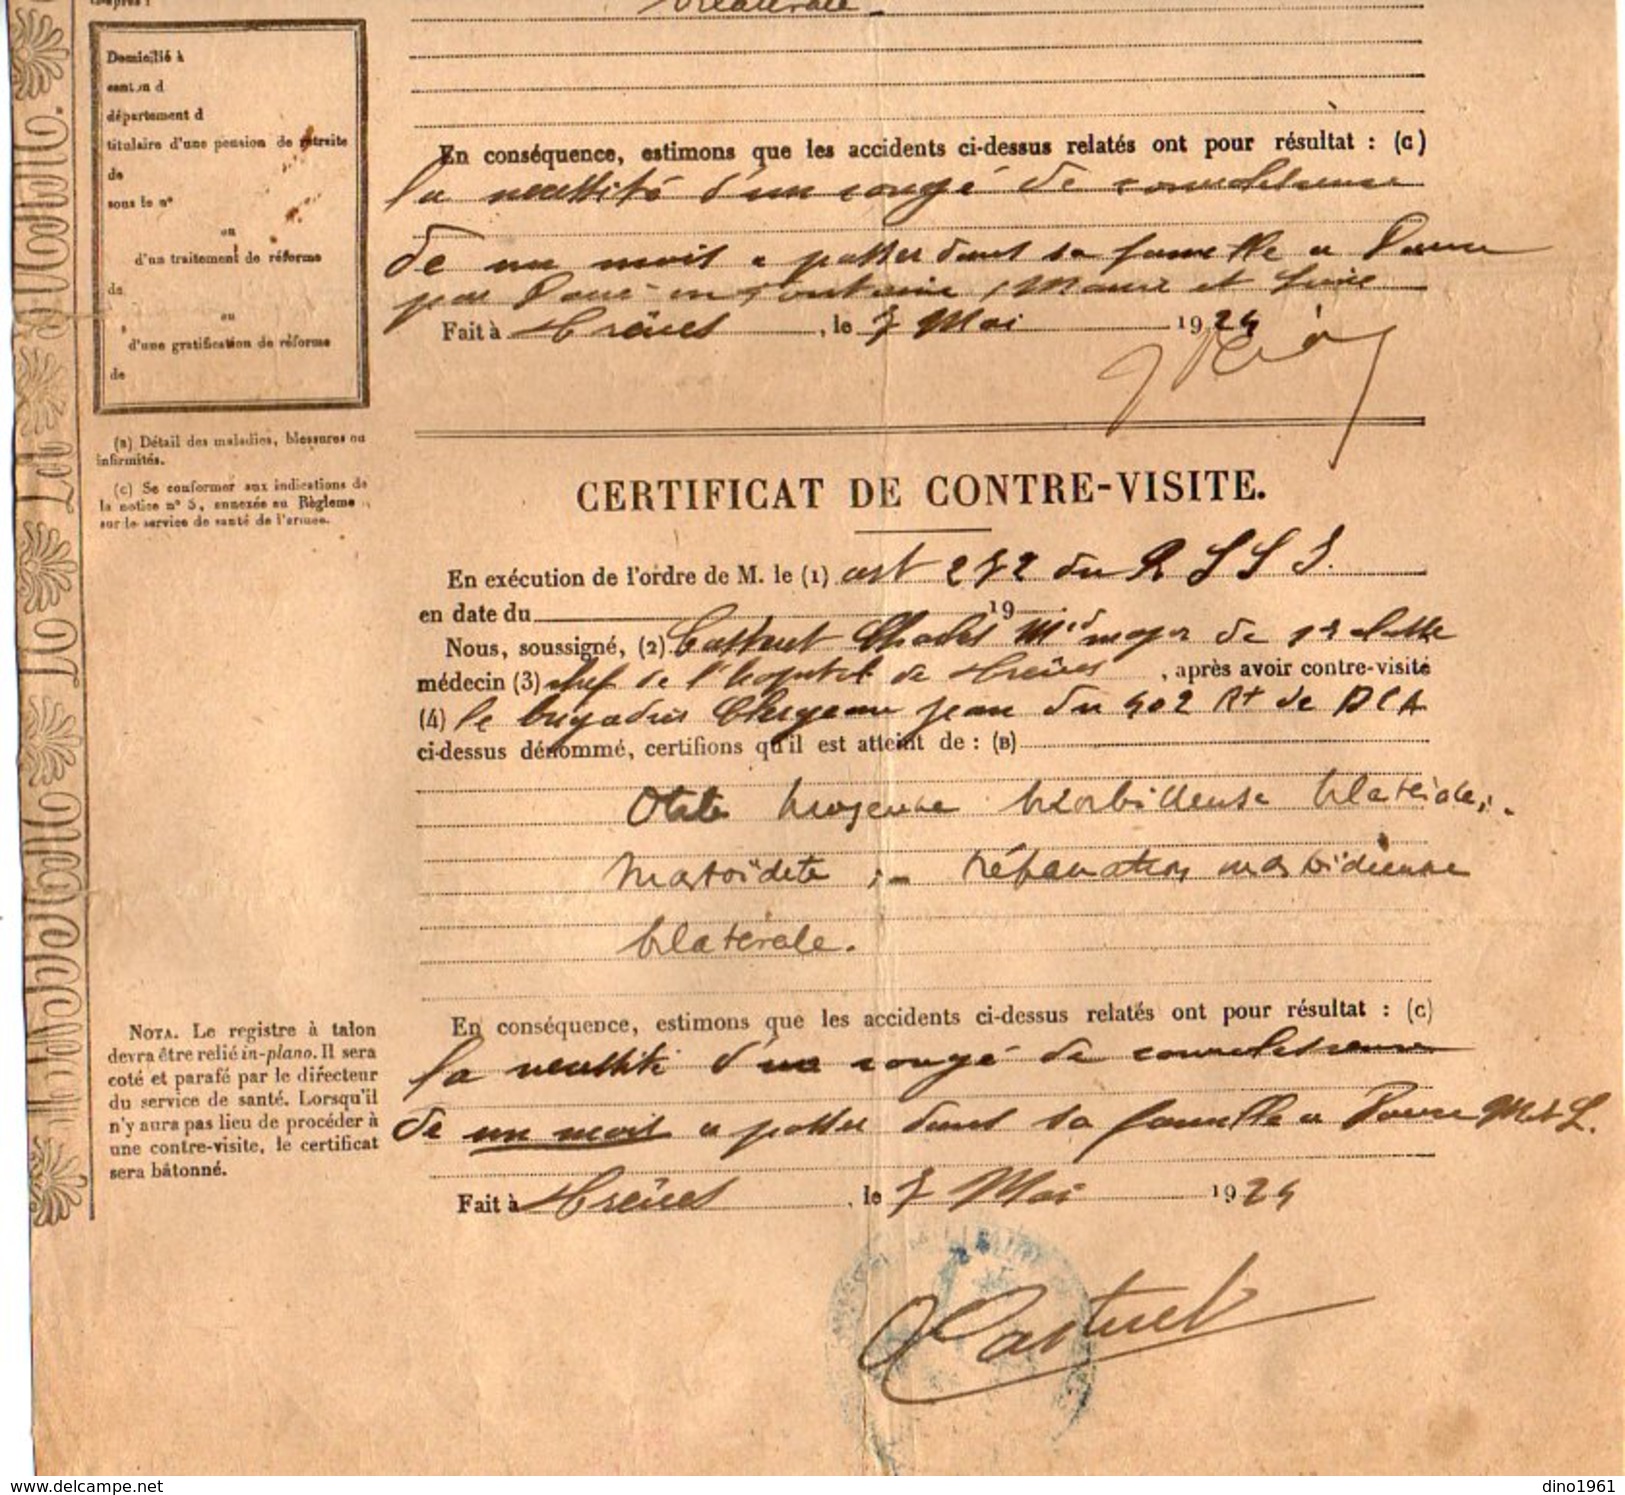 bilatérale
Domicilié à
canton d
département d
titulaire d'une pension de retraite
de
sous le n°
ou
d'un traitement de réforme
de
ou
d'une gratification de réforme
de
(B) Détail des maladies, blessures ou
infirmités.
(C) Se conformer aux indications de
la notice n° 5, annexée au Règleme
sur le service de santé de l'armée.
En conséquence, estimons que les accidents ci-dessus relatés ont pour résultat : (C)
la nécessité d'un congé de convalescence
de un mois a passer dans sa famille a
par en Fontaine, Maine et Loire
Fait à Trèves, le 7 Mai 1924
CERTIFICAT DE CONTRE-VISITE.
En exécution de l'ordre de M. le (1) art 272 du R S S I.
en date du 19
Nous, soussigné, (2) Castuet Charles Méd major de 1re classe
médecin (3) chef de l'hopital de Trèves, après avoir contre-visité
(4) le brigadier Clergeau jean du 402 Rt de DCA
ci-dessus dénommé, certifions qu'il est atteint de : (B)
Otite moyenne morbilleuse bilatérale ; -
Mastoïdite ; - trépanation mastoïdienne
bilatérale.
En conséquence, estimons que les accidents ci-dessus relatés ont pour résultat : (C)
la nécessité d'un congé de convalescence
de un mois a passer dans sa famille a M et L.
Fait à Trèves, le 7 Mai 1924
Castuet
NOTA. Le registre à talon
devra être relié in-plano. Il sera
coté et parafé par le directeur
du service de santé. Lorsqu'il
n'y aura pas lieu de procéder à
une contre-visite, le certificat
sera bâtonné.
https://www.delcampe.net
dino1961